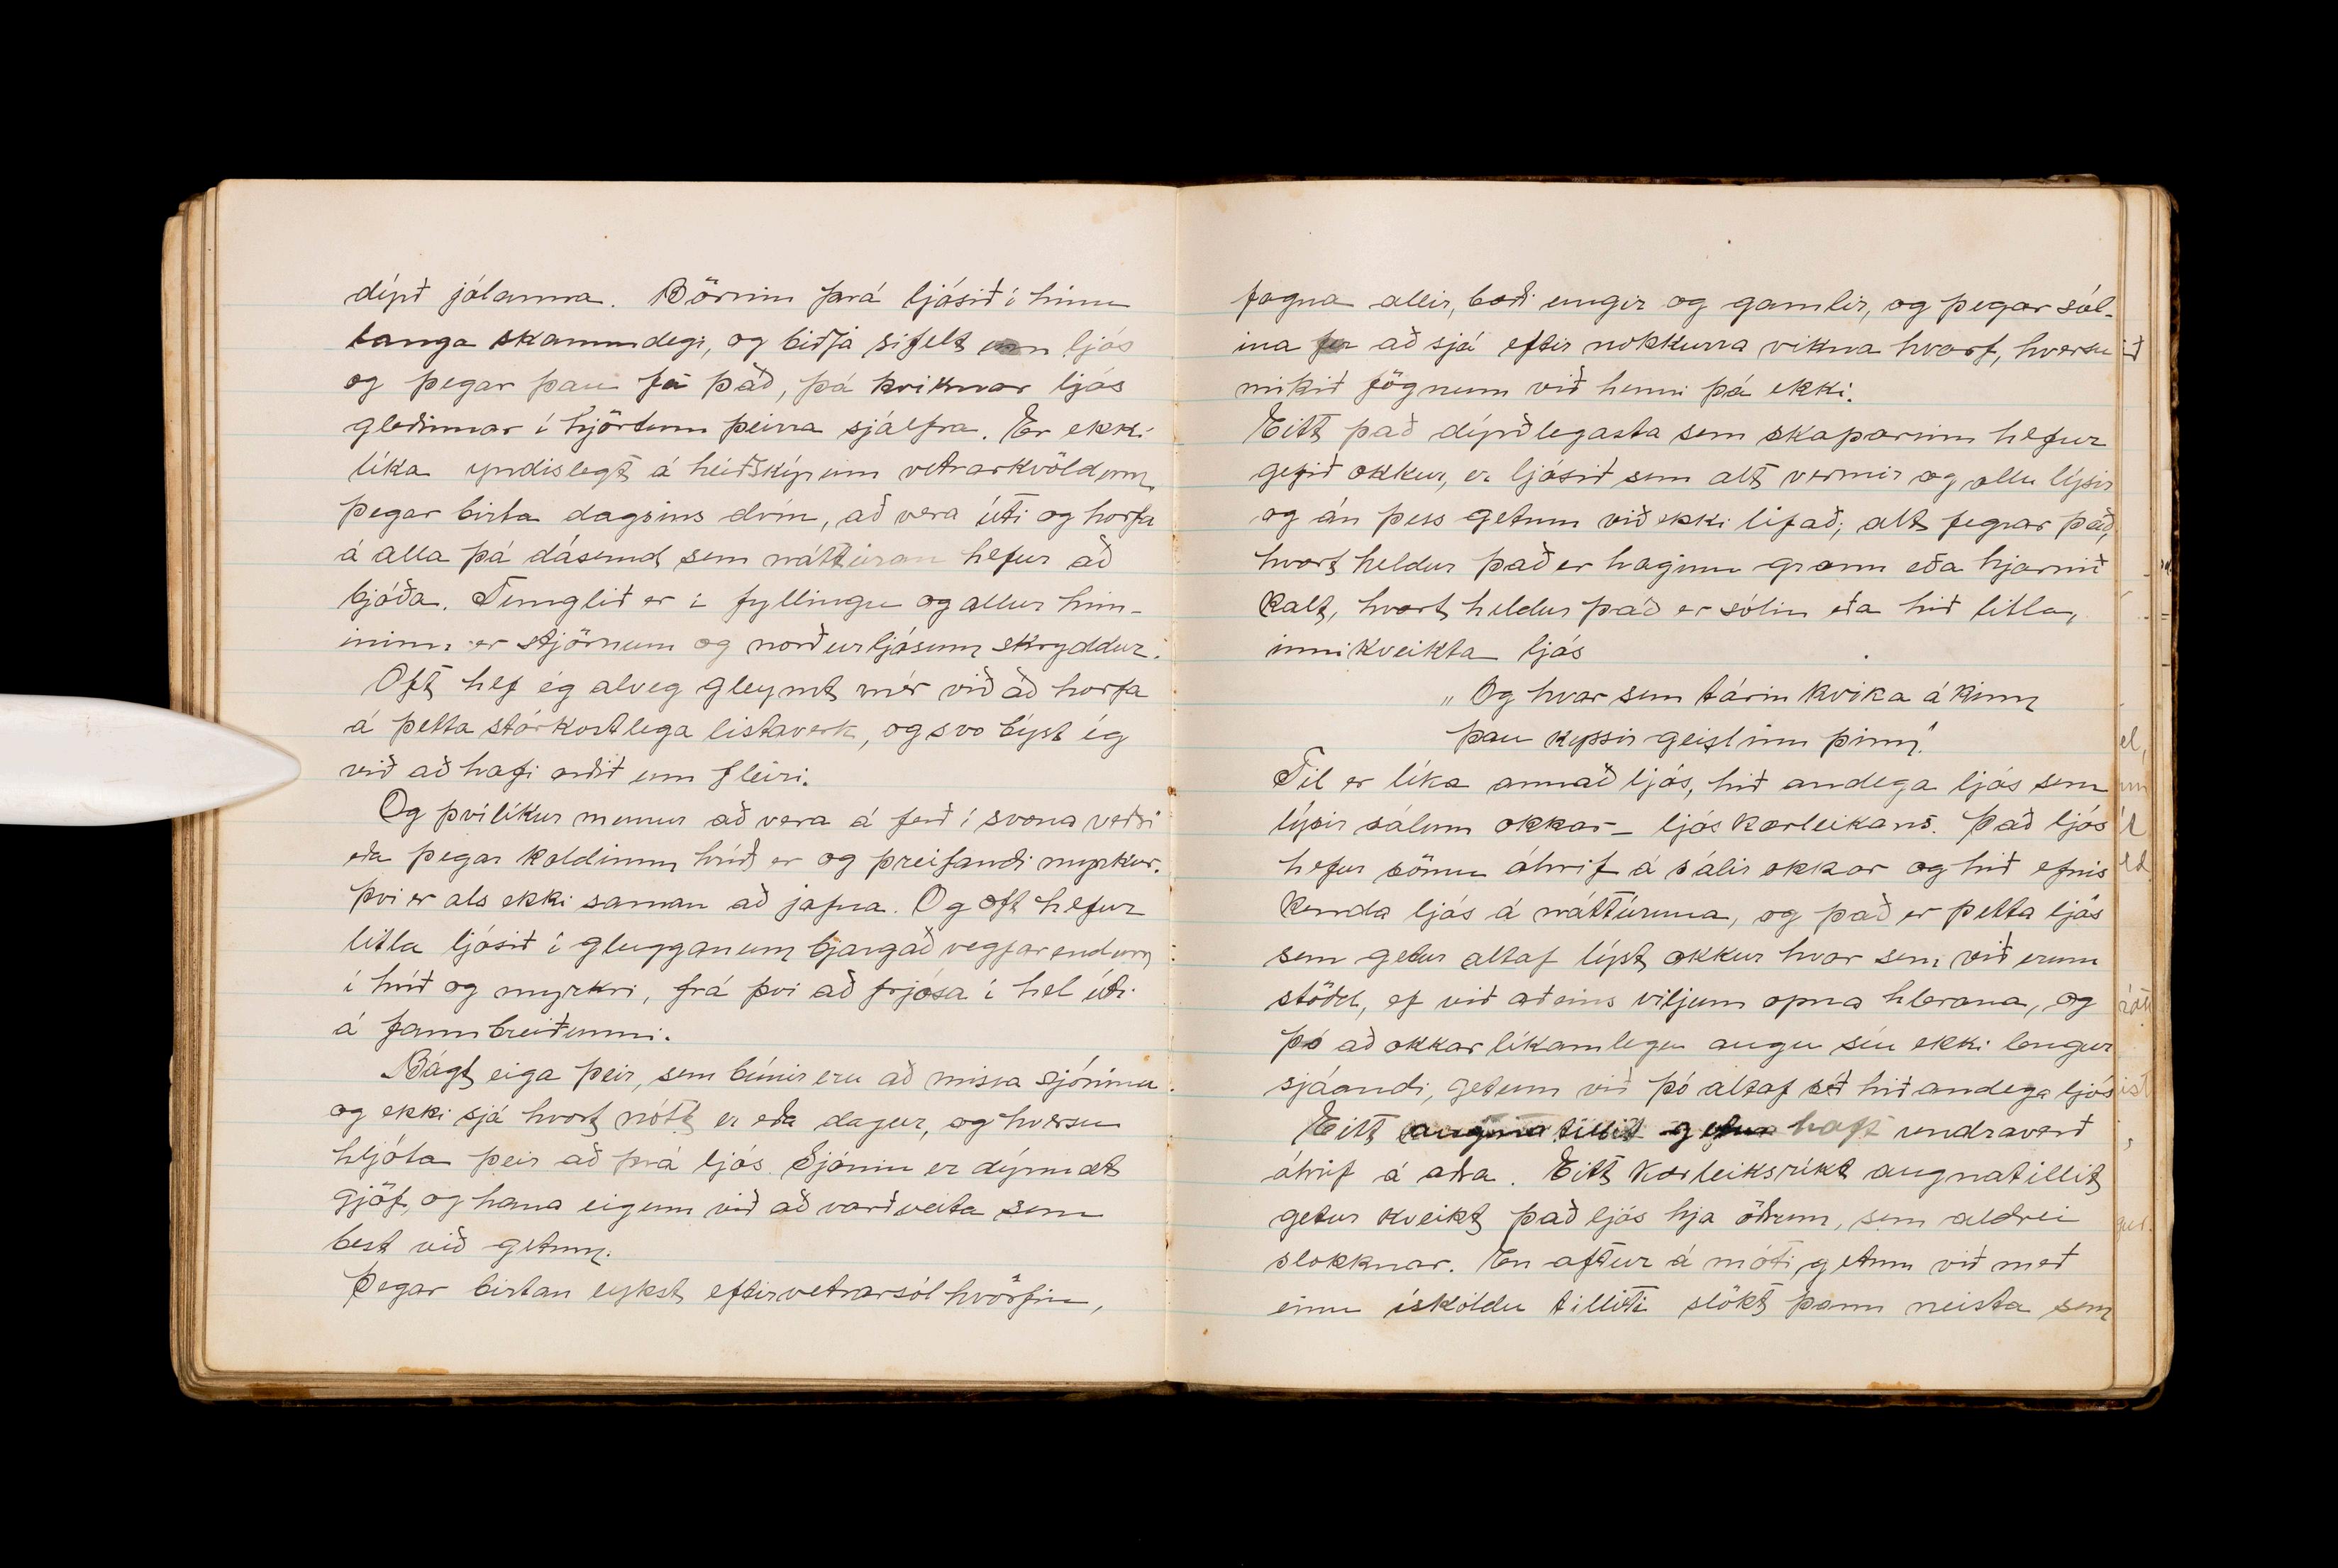 dýrð jólanna. Börnin þrá ljósið í hinu
langa skammdegi, og biðja sífelt um ljós
og þegar þau fá það, þá kviknar ljós
gleðinnar í hjörtum þeirra sjálfra. Er ekki
líka yndislegt á heiðskírum vetrarkvöldum,
þegar birta dagsins dvín, að vera úti og horfa
á alla þá dásemd sem náttúran hefur að
bjóða. Tunglið er í fyllingu og allur him-
ininn er stjörnum og norðurljósum skryddur.
Oft hef ég alveg gleymt mér við að horfa
á þetta stórkostlega listaverk, og svo býst ég
við að hafi orðið um fleiri.
Og þvílíkur munur að vera á ferð í svona veðri
eða þegar koldimm hríð er og þreifandi myrkur.
því er als ekki saman að jafna. Og oft hefur
litla ljósið í glugganum bjargað vegfarendum
í hríð og myrkri, frá því að frjósa í hel úti
á fannbreiðunni.
Bágt eiga þeir, sem búnir eru að missa sjónina
og ekki sjá hvort nótt er eða dagur, og hversu
hljóta þeir að þrá ljós. Sjónin er dýrmæt
gjöf, og hana eigum við að varðveita sem
best við getum.
Þegar birtan eykst eftir vetrarsólhvörfin,
fagna allir, bæði ungir og gamlir, og þegar sól-
ina fer að sjá eftir nokkurra vikna hvarf, hversu
mikið fögnum við henni þá ekki.
Eitt það dýrðlegasta sem skaparinn hefur
gefið okkur, er ljósið sem alt vermir og öllu lýsir
og án þess getum við ekki lifað; alt fegrar það,
hvort heldur það er haginn grænn eða hjarnið
kalt, hvort heldur það er sólin eða hið litla,
innikveikta ljós
„Og hvar sem tárin kvika á kinn
þau kyssir geislinn þinn."
Til er líka annað ljós, hið andega ljós sem
lýsir sálum okkar - ljós kærleikans. Það ljós
hefur sömu áhrif á sálir okkar og hið efnis
kenda ljós á náttúruna, og það er þetta ljós
sem getur altaf lýst okkur hvar sem við erum
stödd, ef við aðeins viljum opna hlerana, og
þó að okkar líkamlegu augu séu ekki lengur
sjáandi, getum við þó altaf séð hið andega ljós
Eitt augnatillit getur haft undravert
áhrif á aðra. Eitt kærleiksríkt augnatillit
getur kveikt það ljós hja öðrum, sem aldrei
slokknar. En aftur á móti getum við með
einu ísköldu tilliti slökt þann neista sem